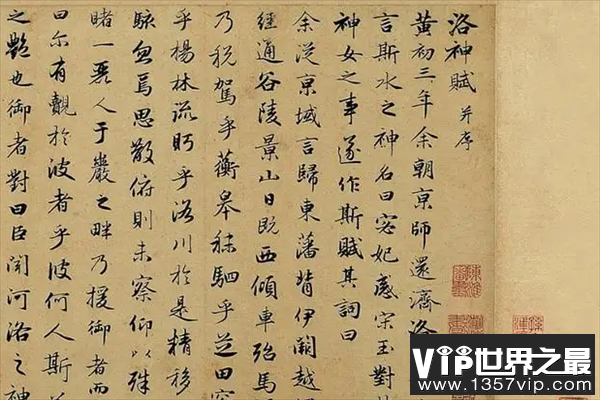 洛神賦 并序
黃初三年余朝京師還濟洛
言斯水之神名曰宓妃感宋玉對
神女之事遂作斯賦其詞曰
余從京域言歸東藩背伊闕越
經通谷陵景山日既西傾車殆馬
乃稅駕乎蘅皋秣駟乎芝田容
乎楊林流眄乎洛川於是精移
駭忽焉思散俯則未察仰以殊
睹一麗人于巖之畔乃援御者而
曰尔有覿於彼者乎彼何人斯
之艷也御者對曰臣聞河洛之神
VIP世界之最
www.1357vip.com